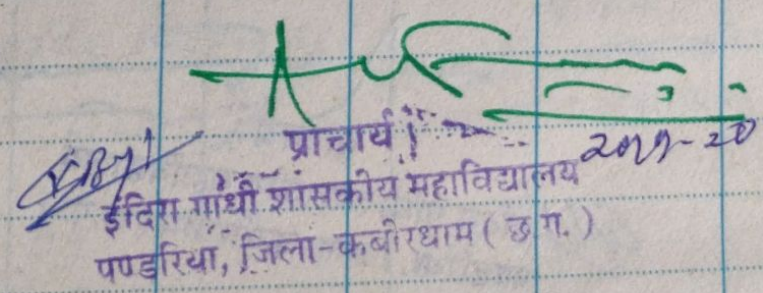 प्राचार्य
2019-20
इंदिरा गांधी शासकीय महाविद्यालय
पण्डरिया, जिला-कबीरधाम (छ.ग.)